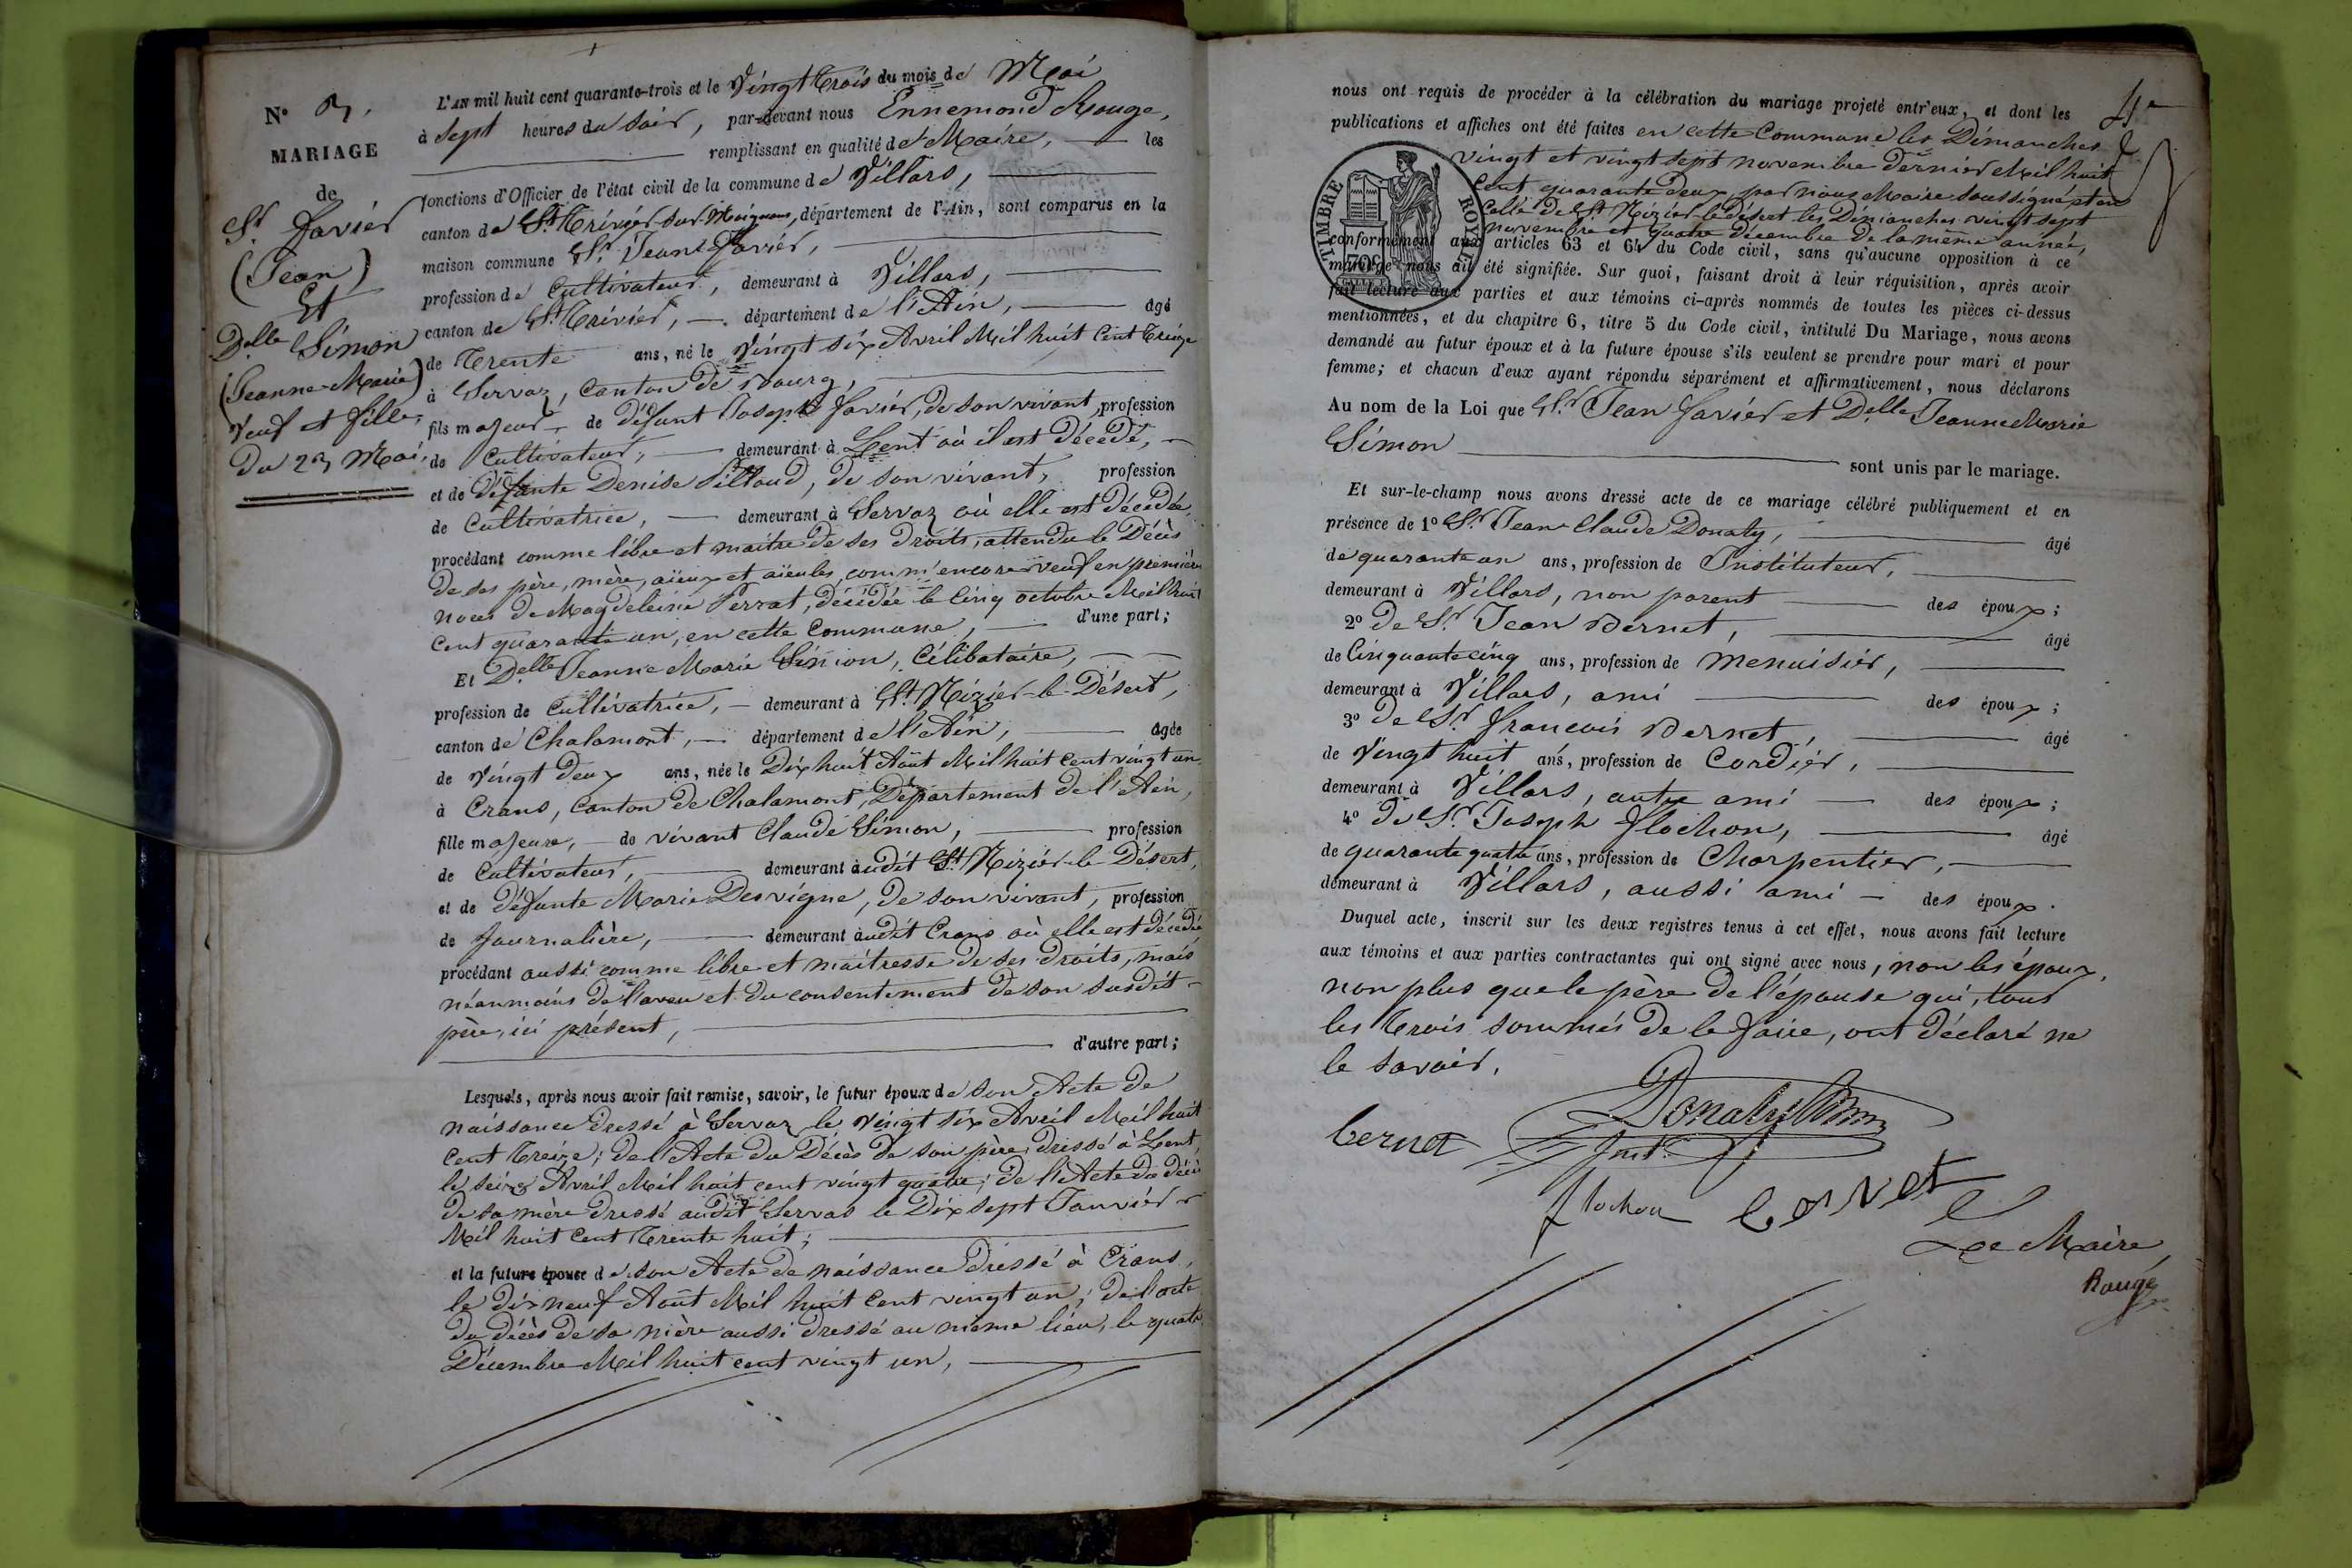 N° 3.
MARIAGE
de
Sr. Favier
(Jean)
Et
Delle Simon
(Jeanne-Marie)
Veuf et fille,
du 23 Mai.
L'AN mil huit cent quarante-trois et le Vingt trois du mois de Mai
à Sept heures du soir, par-devant nous Ennemond Rouge,
remplissant en qualité de Maire, les
fonctions d'Officier de l'état civil de la commune de Villars,
canton de St. Trivier sur Moignans, département de l'Ain, sont comparus en la
maison commune Sr. Jean Favier,
profession de Cultivateur, demeurant à Villars,
canton de St. Trivier, département de l'Ain, âgé
de Trente ans, né le Vingt six Avril Mil huit Cent Treize
à Servaz, Canton de Bourg,
fils majeur de défunt Joseph Favier, de son vivant, profession
de Cultivateur, demeurant à Lent où il est Décédé,
et de défunte Denise Pittoud, de son vivant, profession
de Cultivatrice, demeurant à Servaz où elle est Décédée
procédant comme libre et maître de ses Droits, attendu le Décès
de ses père, mère, aïeux et aïeules, comm'encore veuf en premières
noces de Magdeleine Perrat, décédée le Cinq octobre Mil huit
Cent quarante un, en cette Commune, d'une part;
Et Delle Jeanne Marie Simon, Célibataire,
profession de Cultivatrice, demeurant à St. Nizier-le-Désert,
canton de Chalamont, département de l'Ain, âgée
de Vingt Deux ans, née le Dix huit Août Mil huit Cent vingt un
à Crans, Canton de Chalamont, Département de l'Ain,
fille majeure, de vivant Claude Simon, profession
de Cultivateur, demeurant audit St. Nizier-le-Désert,
et de défunte Marie Desvigne, de son vivant, profession
de Journalière, demeurant audit Crans où elle est décédée
procédant aussi comme libre et maîtresse de ses droits, mais
néanmoins de l'aveu et du consentement de son susdit
père, ici présent,
d'autre part;
Lesquels, après nous avoir fait remise, savoir, le futur époux de son Acte de
naissance dressé à Servaz le vingt six Avril Mil huit
Cent Treize; de l'Acte du Décès de son père, dressé à Lent,
le seize Avril Mil huit cent vingt quatre; de l'Acte du décès
de sa mère dressé audit Servas le Dix sept Janvier
Mil huit Cent Trente huit;
et la future épouse de son Acte de naissance Dressé à Crans,
le dix neuf Août Mil huit Cent vingt un; De l'acte
du décès de sa mère aussi dressé au même lieu, le quatre
Décembre Mil huit cent vingt un,
4e
nous ont requis de procéder à la célébration du mariage projeté entr'eux, et dont les
publications et affiches ont été faites en cette Commune les Dimanches
vingt et vingt sept novembre Dernier Mil huit
Cent quarante Deux, par nous Maire soussigné, et en
Celle de St. Nizier-le-Désert les Dimanches vingt sept
novembre et quatre décembre de la même année,
TIMBRE ROYAL
70c
conformément aux articles 63 et 64 du Code civil, sans qu'aucune opposition à ce
mariage nous ait été signifiée. Sur quoi, faisant droit à leur réquisition, après avoir
fait lecture aux parties et aux témoins ci-après nommés de toutes les pièces ci-dessus
mentionnées, et du chapitre 6, titre 5 du Code civil, intitulé Du Mariage, nous avons
demandé au futur époux et à la future épouse s'ils veulent se prendre pour mari et pour
femme; et chacun d'eux ayant répondu séparément et affirmativement, nous déclarons
Au nom de la Loi que Sr. Jean Favier et Delle Jeanne Marie
Simon sont unis par le mariage.
Et sur-le-champ nous avons dressé acte de ce mariage célébré publiquement et en
présence de 1° Sr. Jean-Claude Donaty, âgé
de quarante un ans, profession de Instituteur,
demeurant à Villars, non parent des époux;
2° De Sr. Jean Bernet, âgé
de Cinquante cinq ans, profession de menuisier,
demeurant à Villars, ami des époux;
3° De Sr. François Bernet, âgé
de Vingt huit ans, profession de Cordier,
demeurant à Villars, autre ami des époux;
4° De Sr. Joseph Flochon, âgé
de quarante quatre ans, profession de Charpentier,
demeurant à Villars, aussi ami des époux.
Duquel acte, inscrit sur les deux registres tenus à cet effet, nous avons fait lecture
aux témoins et aux parties contractantes qui ont signé avec nous, non les époux,
non plus que le père de l'épouse qui, tous
les trois sommés de le faire, ont déclaré ne
le savoir.
Bernet
Donaty
Inst.
flochon
Bernet
Le Maire
Rouge